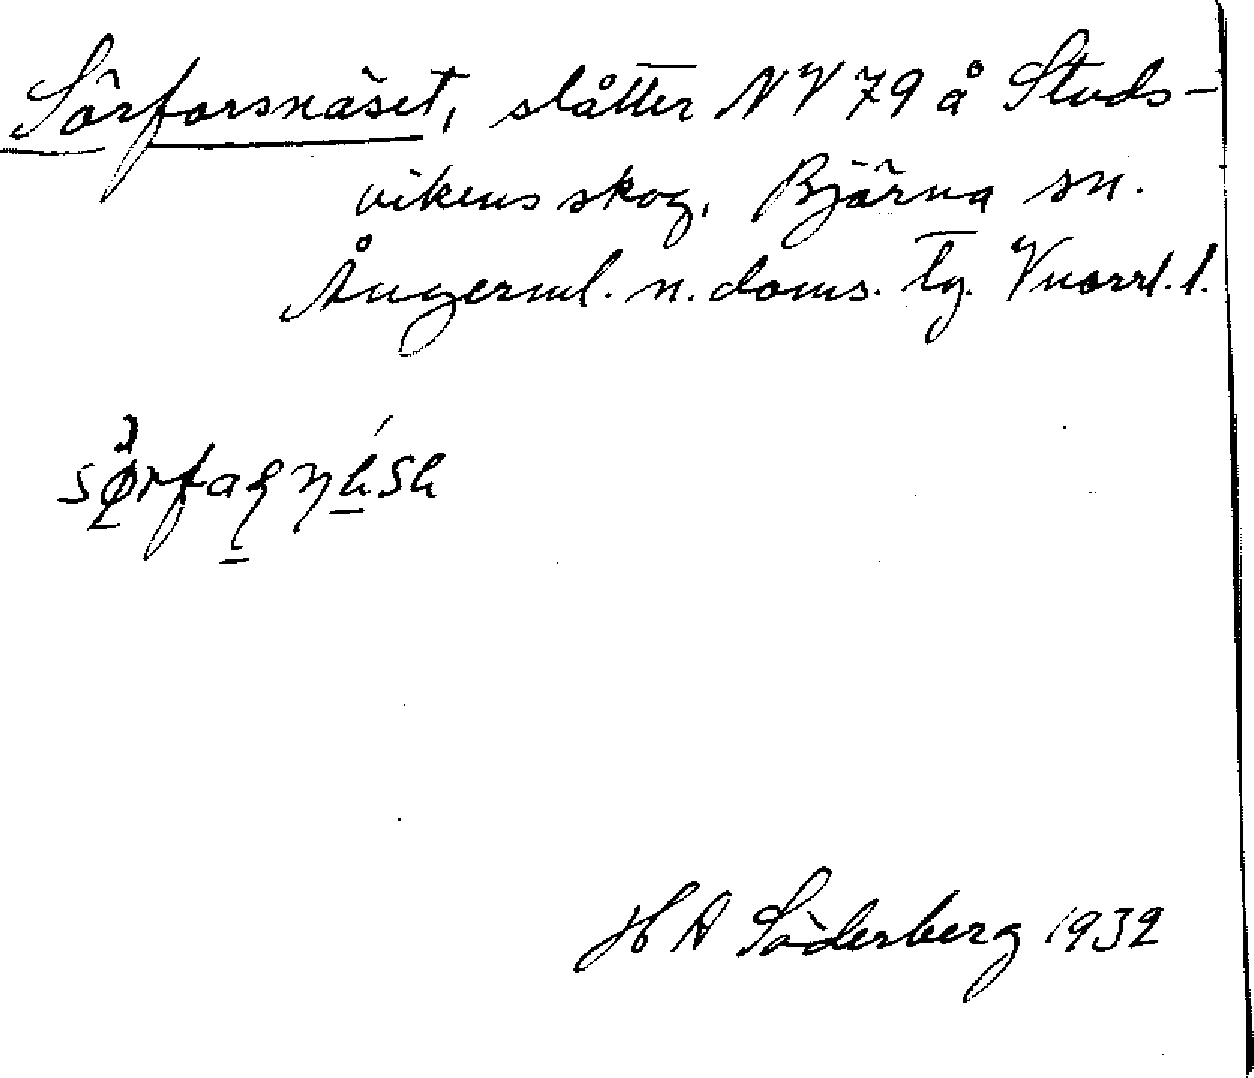 Sörforsnäset, slåtter NV 79 å Studs-
vikens skog, Björna sn.
Ångerml. n. doms. tg. Vnorrl. l.
H A Söderberg 1932